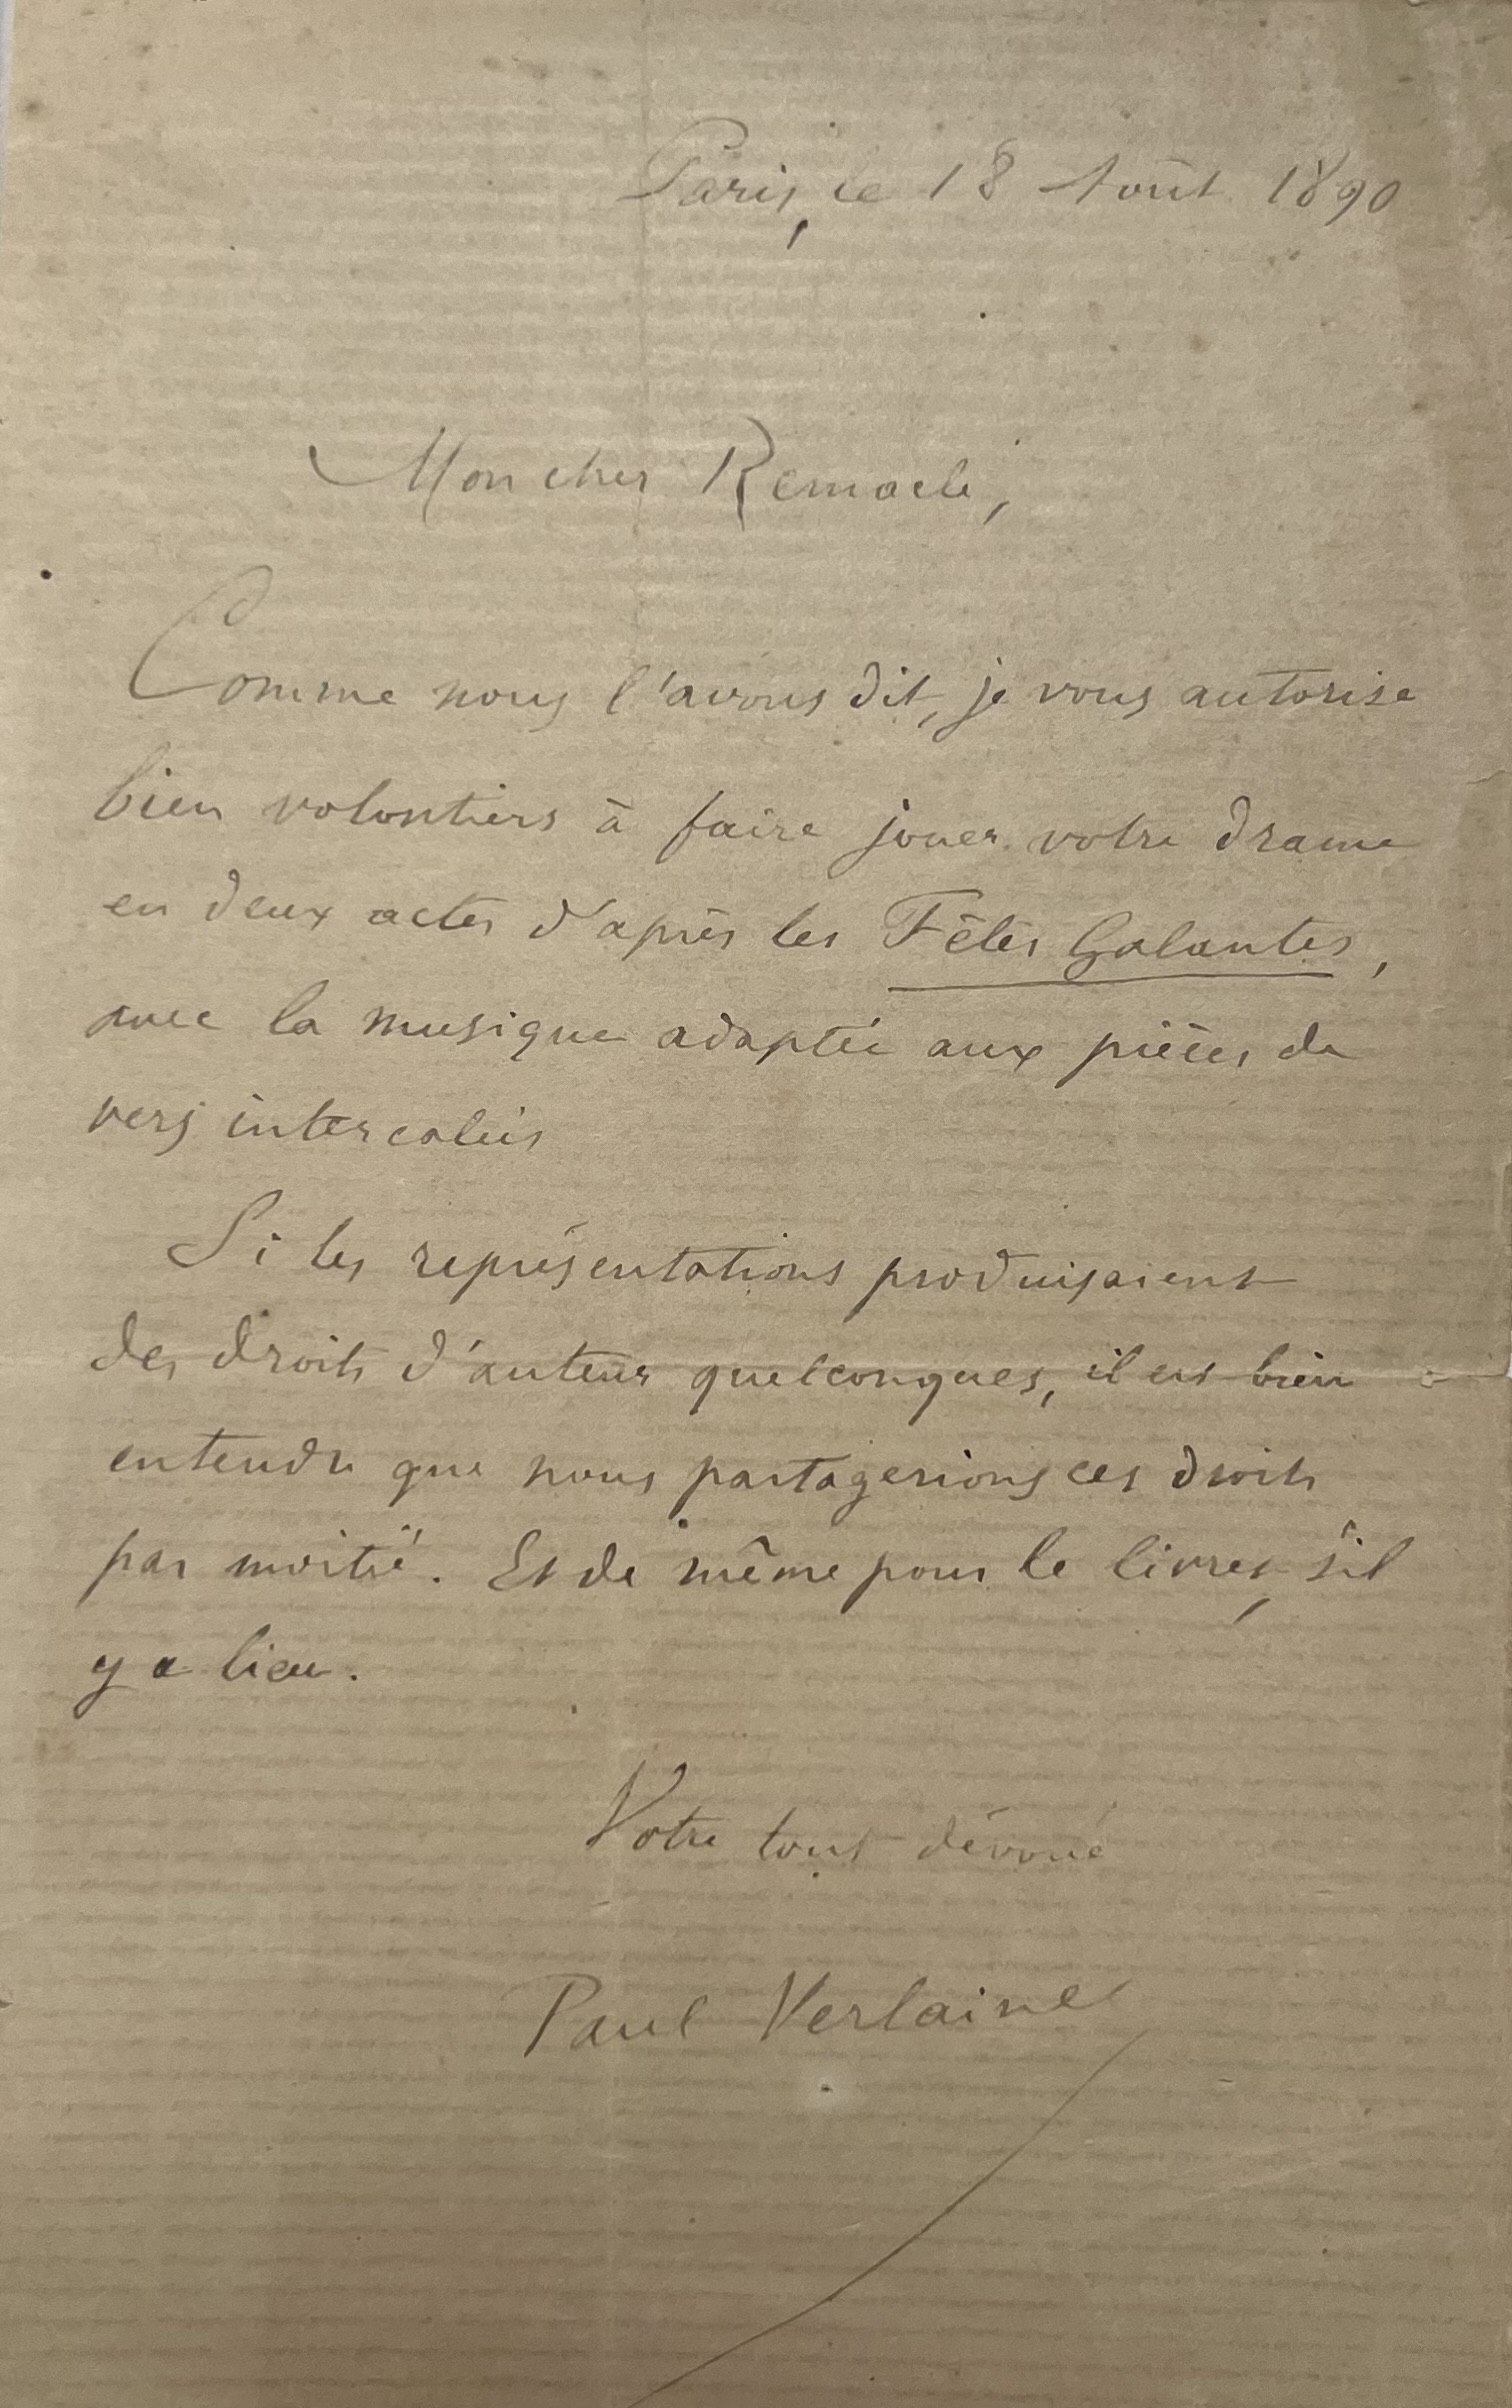 Paris, le 18 Août 1890
Mon cher Remacle,
Comme nous l'avons dit, je vous autorise
bien volontiers à faire jouer votre drame
en deux actes d'après les Fêtes Galantes,
avec la musique adaptée aux pièces de
vers intercalées
Si les représentations produisaient
des droits d'auteur quelconques, il est bien
entendu que nous partagerions ces droits
par moitié. Et de même pour le livret, s'il
y a lieu.
Votre tout dévoué
Paul Verlaine